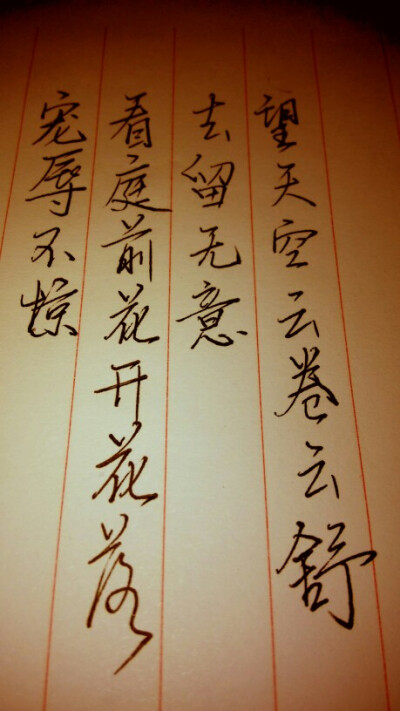 望天空云卷云舒
去留无意
看庭前花开花落
宠辱不惊